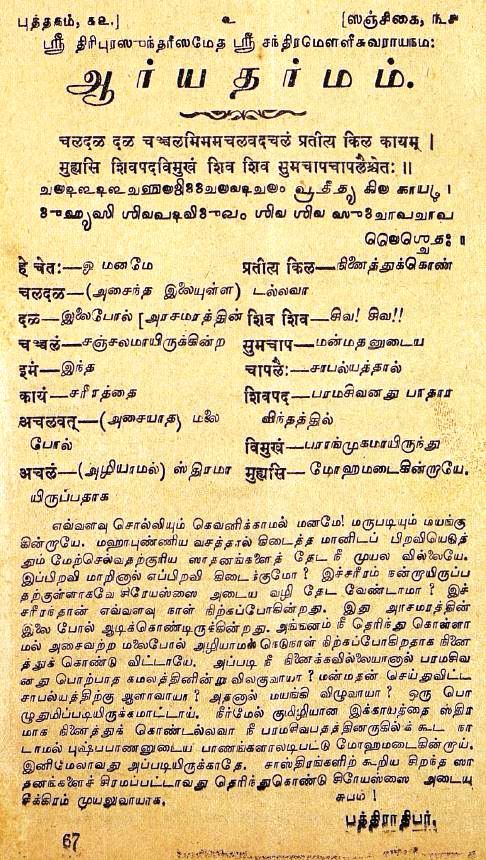 புத்தகம், ௬௨.] ௨ [ஸஞ்சிகை, ௩,௪
ஸ்ரீ திரிபுரஸுந்தரீஸமேத ஸ்ரீ சந்திரமௌளீசுவராயநம:
ஆர்யதர்மம்.
चलदळ दळ चञ्चलमिममचलवदचलं प्रतीत्य किल कायम् ।
मुह्यसि शिवपदविमुखं शिव शिव सुमचापचापलैश्चेतः ॥
𑌚𑌲𑌦𑌳 𑌦𑌳 𑌚𑌞𑍍𑌚𑌲𑌮𑌿𑌮𑌮𑌚𑌲𑌵𑌦𑌚𑌲𑌂 𑌪𑍍𑌰𑌤𑍀𑌤𑍍𑌯 𑌕𑌿𑌲 𑌕𑌾𑌯𑌮𑍍 ।
𑌮𑍁𑌹𑍍𑌯𑌸𑌿 𑌶𑌿𑌵𑌪𑌦𑌵𑌿𑌮𑍁𑌖𑌂 𑌶𑌿𑌵 𑌶𑌿𑌵 𑌸𑍁𑌮𑌚𑌾𑌪𑌚𑌾𑌪
𑌲𑍈𑌶𑍍𑌚𑍇𑌤𑌃 ॥
हे चेतः—ஓ மனமே
चलदळ—(அசைந்த இலையுள்ள)
दळ—இலைபோல் [அரசமரத்தின்
चञ्चलं—சஞ்சலமாயிருக்கின்ற
इमं—இந்த
कायं—சரீரத்தை
अचलवत्—(அசையாத) மலை
போல்
अचलं—(அழியாமல்) ஸ்திரமா
யிருப்பதாக
प्रतीत्य किल—நினைத்துக்கொண்
டல்லவா
शिव शिव—சிவ! சிவ!!
सुमचाप—மன்மதனுடைய
चापलैः—சாபல்யத்தால்
शिवपद—பரமசிவனது பாதார
விந்தத்தில்
विमुखं—பராங்முகமாயிருந்து
मुह्यसि—மோஹமடைகின்றாயே.
எவ்வளவு சொல்லியும் கெவனிக்காமல் மனமே! மருபடியும் மயங்கு
கின்றாயே. மஹாபுண்ணிய வசத்தால் கிடைத்த மானிடப் பிறவியெடுத்
தும் மேற்செல்வதற்குரிய ஸாதனங்களைத் தேட நீ முயல வில்லையே.
இப்பிறவி மாறினால் எப்பிறவி கிடைக்குமோ? இச்சரீரம் நன்றாயிருப்ப
தற்குள்ளாகவே சிரேயஸ்ஸை அடைய வழி தேட வேண்டாமா? இச்
சரீரந்தான் எவ்வளவு நாள் நிற்கப்போகின்றது. இது அரசமரத்தின்
இலை போல் ஆடிக்கொண்டிருக்கின்றது. அங்ஙனம் நீ தெரிந்து கொள்ளா
மல் அசைவற்ற மலைபோல் அழியாமல் நெடுநாள் நிற்கப்போகிறதாக நினை
த்துக் கொண்டு விட்டாயே. அப்படி நீ நினைக்கவில்லையானால் பரமசிவ
னது பொற்பாத கமலத்தினின்று விலகுவாயா? மன்மதன் செய்துவிட்ட
சாபல்யத்திற்கு ஆளாவாயா? அதனால் மயங்கி விழுவாயா? ஒரு பொ
ழுதுமிப்படியிருக்கமாட்டாய். நீர்மேல் குமிழியான இக்காயத்தை ஸ்திர
மாக நினைத்துக் கொண்டல்லவா நீ பரமசிவபதத்தினருகில் கூட நா
டாமல் புஷ்பபாணனுடைய பாணங்களாலடிபட்டு மோஹமடைகின்றாய்.
இனிமேலாவது அப்படியிருக்காதே. சாஸ்திரங்களிற் கூறிய சிறந்த ஸா
தனங்களைச் சிரமப்பட்டாவது தெரிந்துகொண்டு சிரேயஸ்ஸை அடையு
சீக்கிரம் முயலுவாயாக. சுபம்!
பத்திராதிபர்.
67